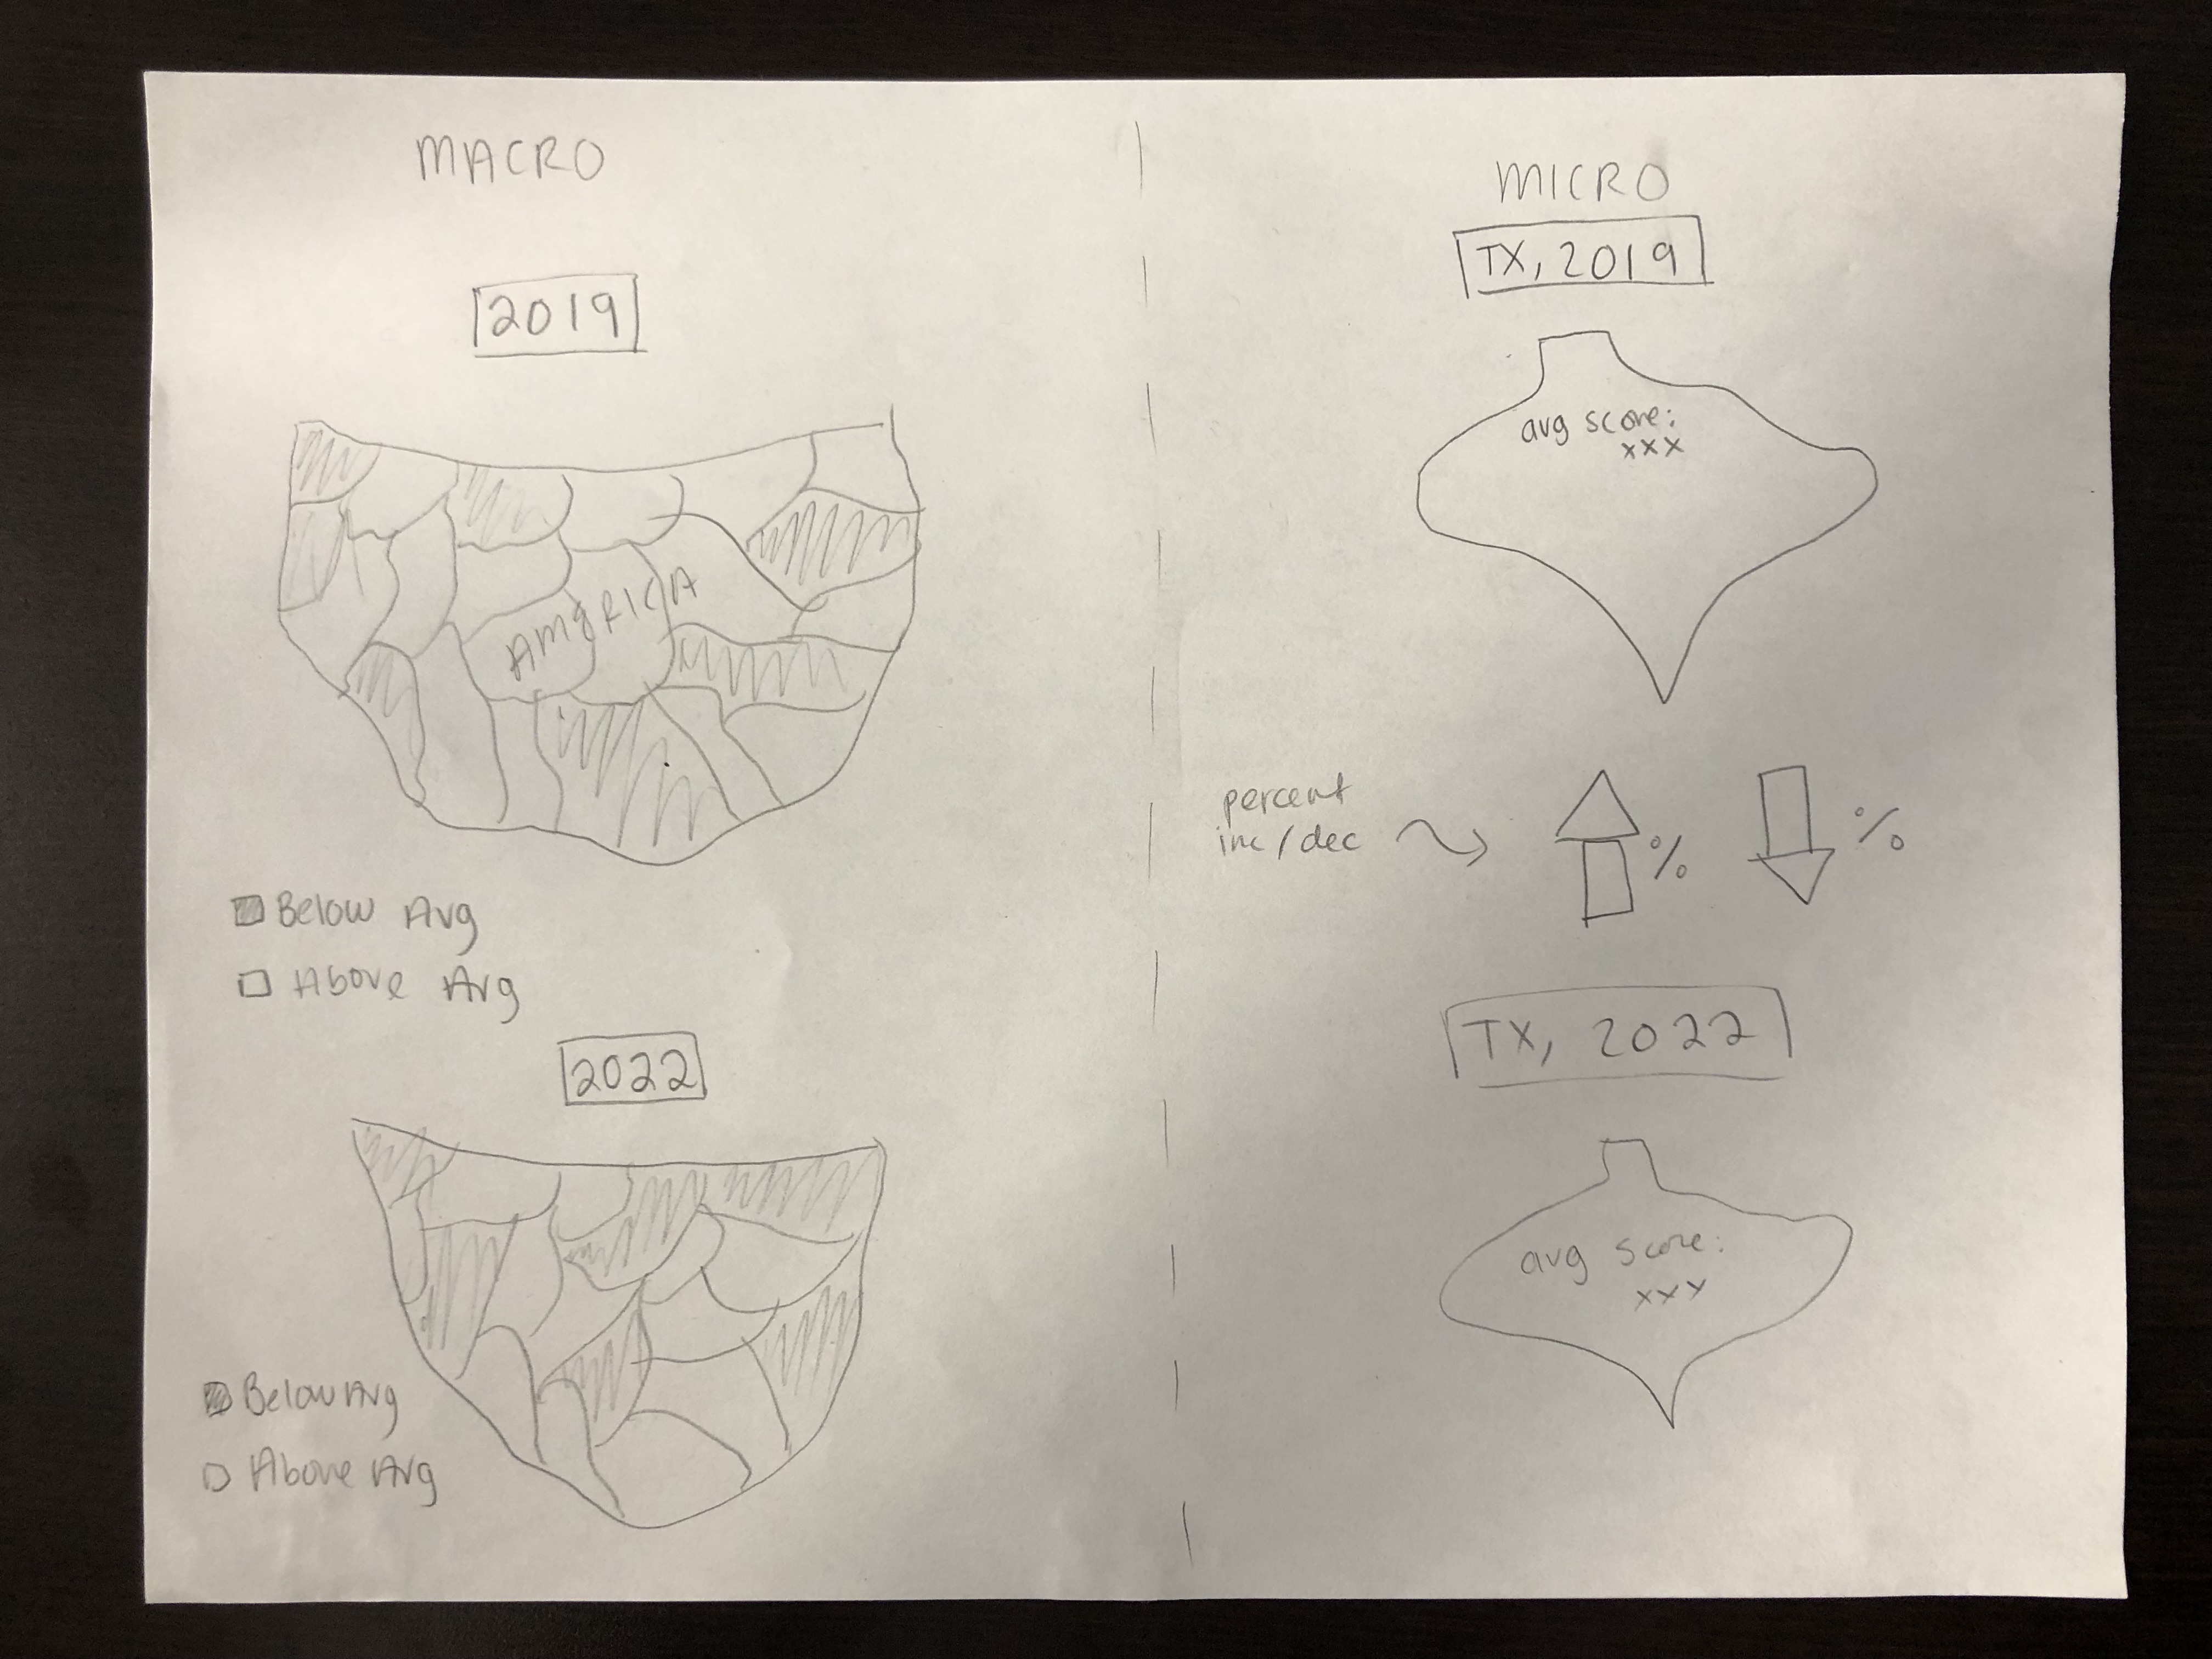 MACRO
2019
AMERICA
Below Avg
Above Avg
2022
Below Avg
Above Avg
MICRO
TX, 2019
avg score:
xxx
percent
inc/dec
%
%
TX, 2022
avg score:
xxx